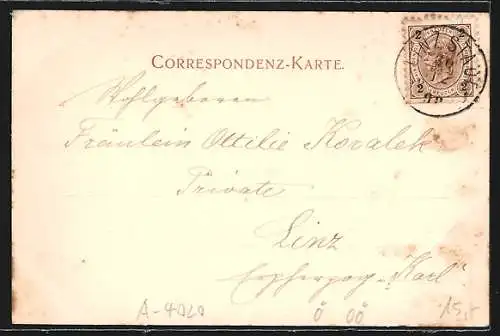 CORRESPONDENZ-KARTE.
2 2
LINZ STADT
2 2
98
Wohlgeboren
Fräulein Ottilie Kovalek
Private
Linz
Erzherzog „Karl“
A-4020 Ö ÖÖ 15,-